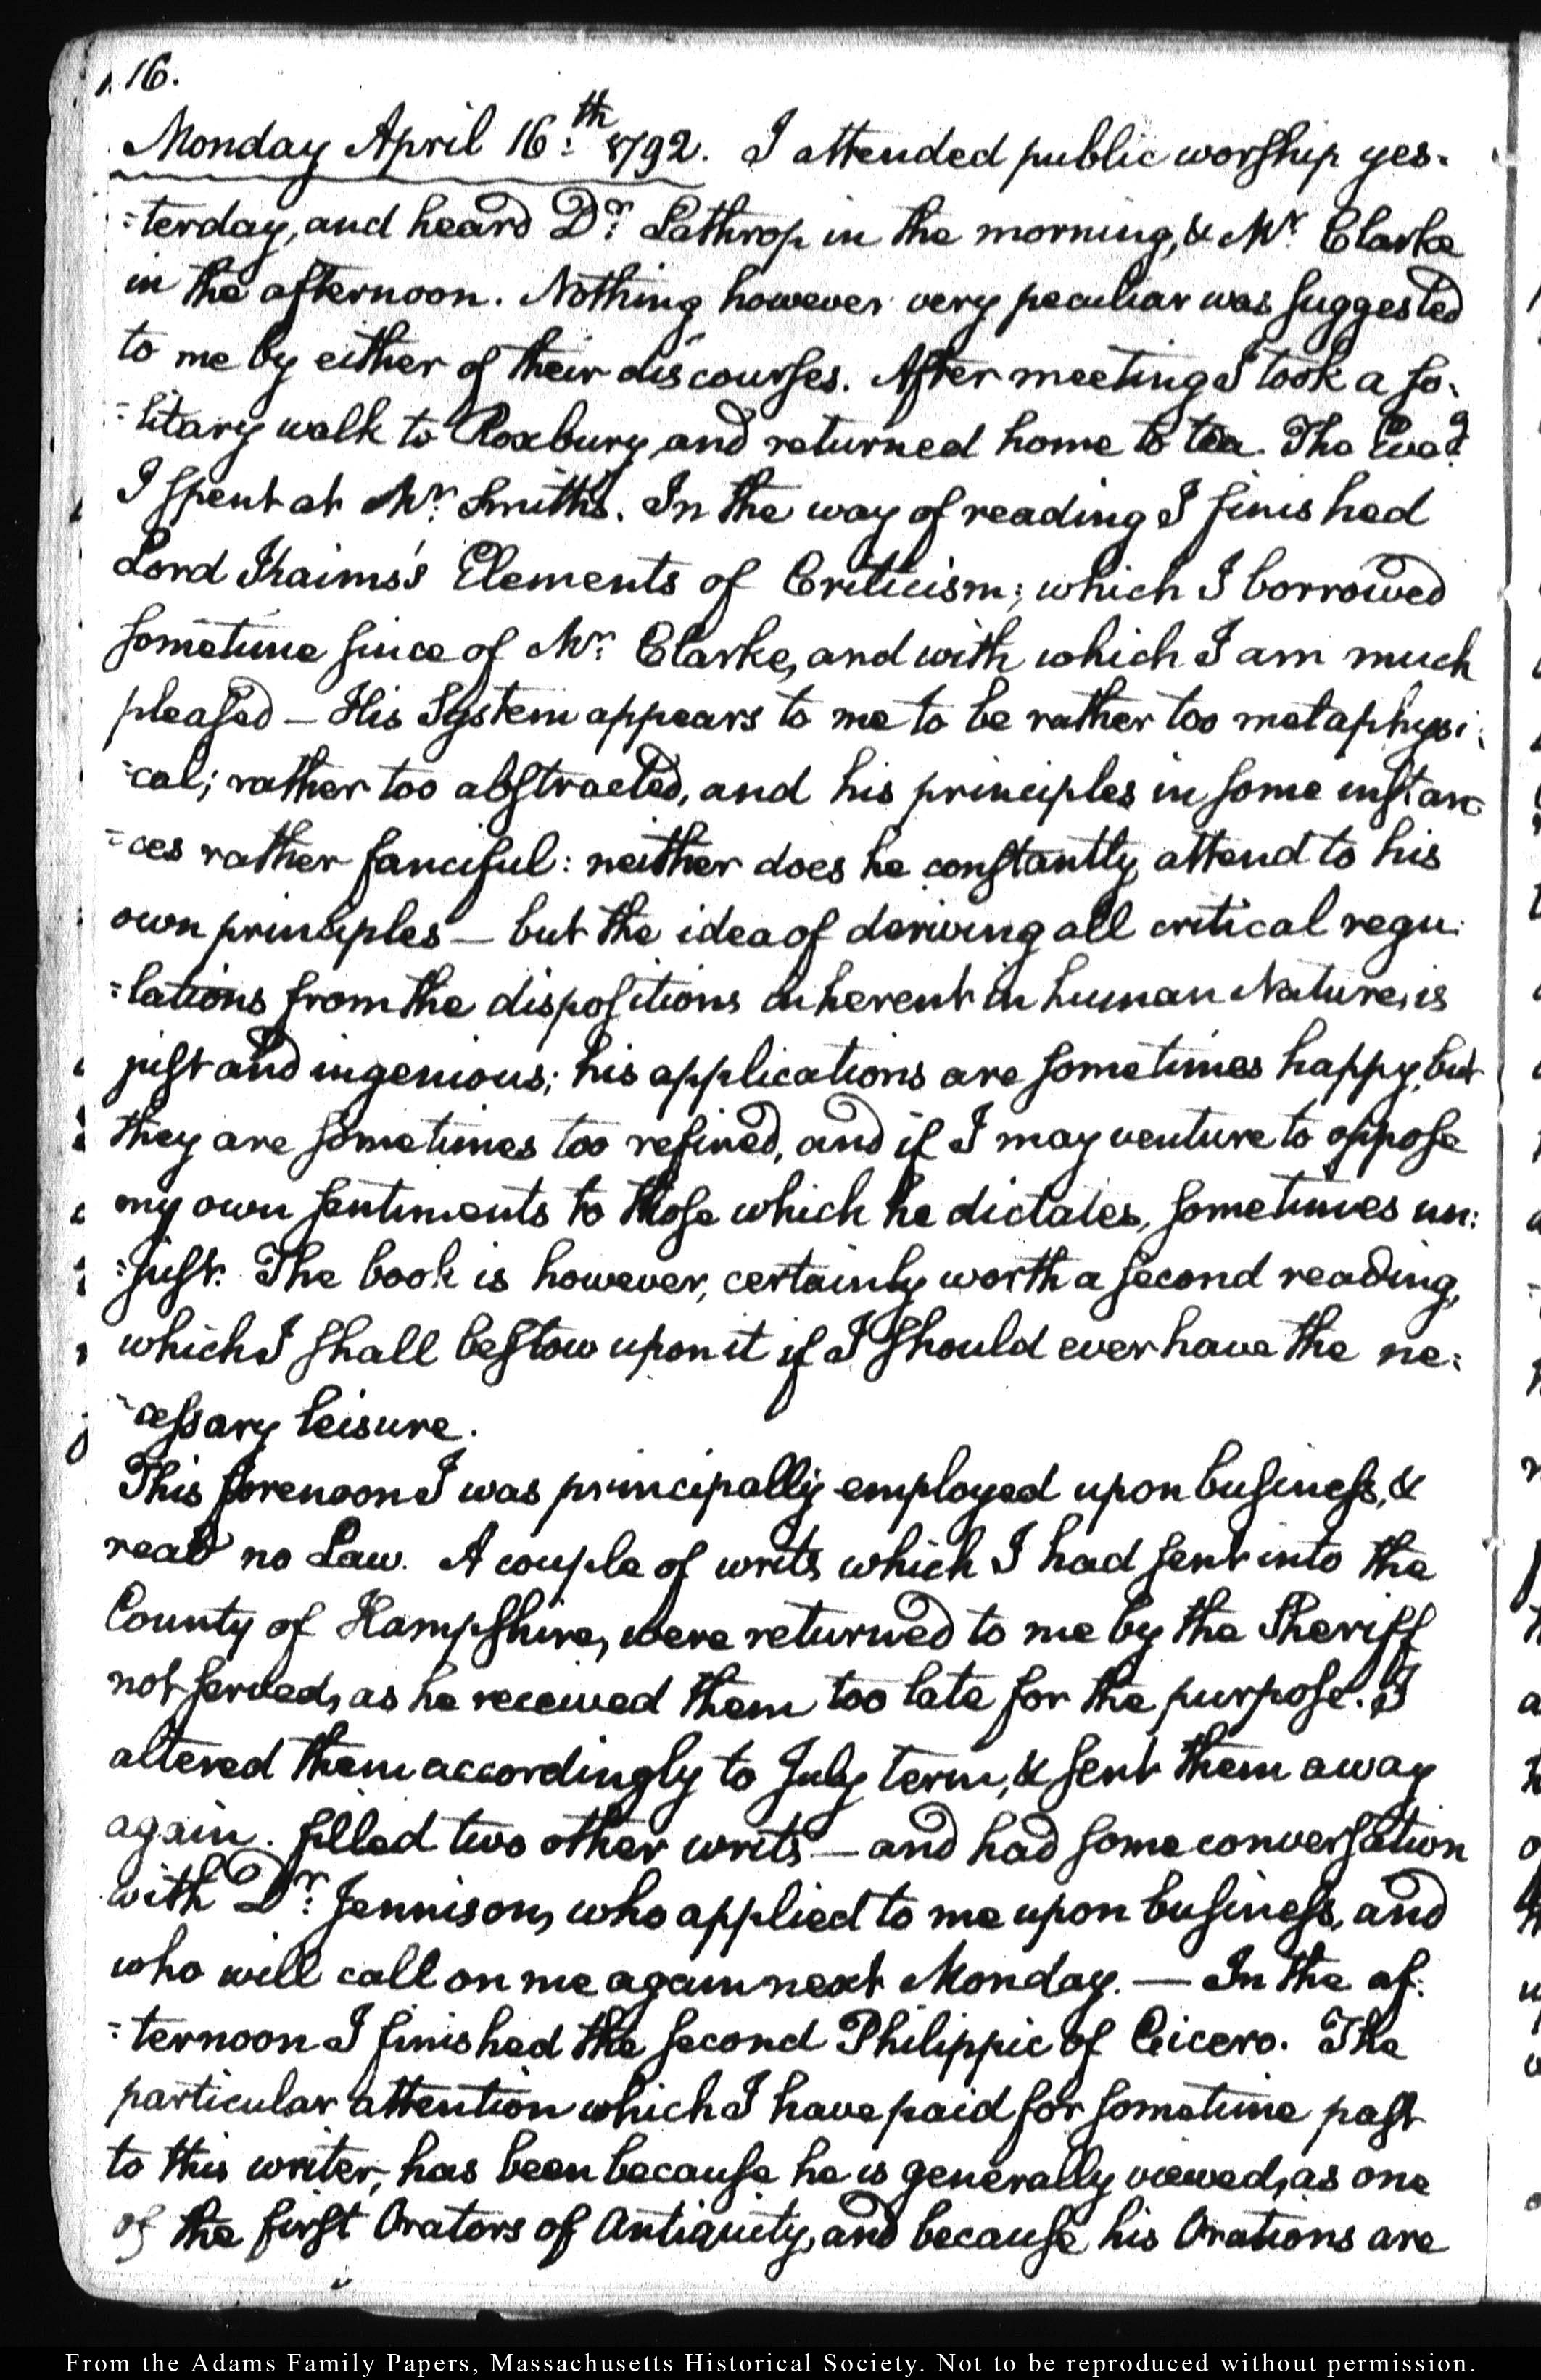 16.
Monday April 16th: 1792. I attended public worship yes-
-terday, and heard Dr: Lathrop in the morning, & Mr. Clarke
in the afternoon. Nothing however very peculiar was suggested
to me by either of their discourses. After meeting I took a so-
-litary walk to Roxbury, and returned home to tea. The Eveg.
I spent at Mr: Smith's. In the way of reading I finished
Lord Kaims's Elements of Criticism; which I borrowed
sometime since of Mr: Clarke, and with which I am much
pleased — His System appears to me to be rather too metaphysi-
-cal; rather too abstracted, and his principles in some instan-
-ces rather fanciful: neither does he constantly attend to his
own principles — but the idea of deriving all critical regu-
-lations from the dispositions inherent in human Nature, is
just and ingenious; his applications are sometimes happy, but
they are sometimes too refined, and if I may venture to oppose
my own sentiments to those which he dictates, sometimes un-
-just. The book is however, certainly worth a second reading,
which I shall bestow upon it if I should ever have the ne-
-cessary leisure.
This forenoon I was principally employed upon business, &
read no Law. A couple of writs which I had sent into the
County of Hampshire, were returned to me by the Sheriff
not served, as he received them too late for the purpose. I
altered them accordingly to July term, & sent them away
again. filled two other writs — and had some conversation
with Dr: Jennison, who applied to me upon business, and
who will call on me again next Monday. — In the af-
-ternoon I finished the second Philippic of Cicero. The
particular attention which I have paid for sometime past
to this writer, has been because he is generally viewed, as one
of the first Orators of Antiquity, and because his Orations are
From the Adams Family Papers, Massachusetts Historical Society. Not to be reproduced without permission.